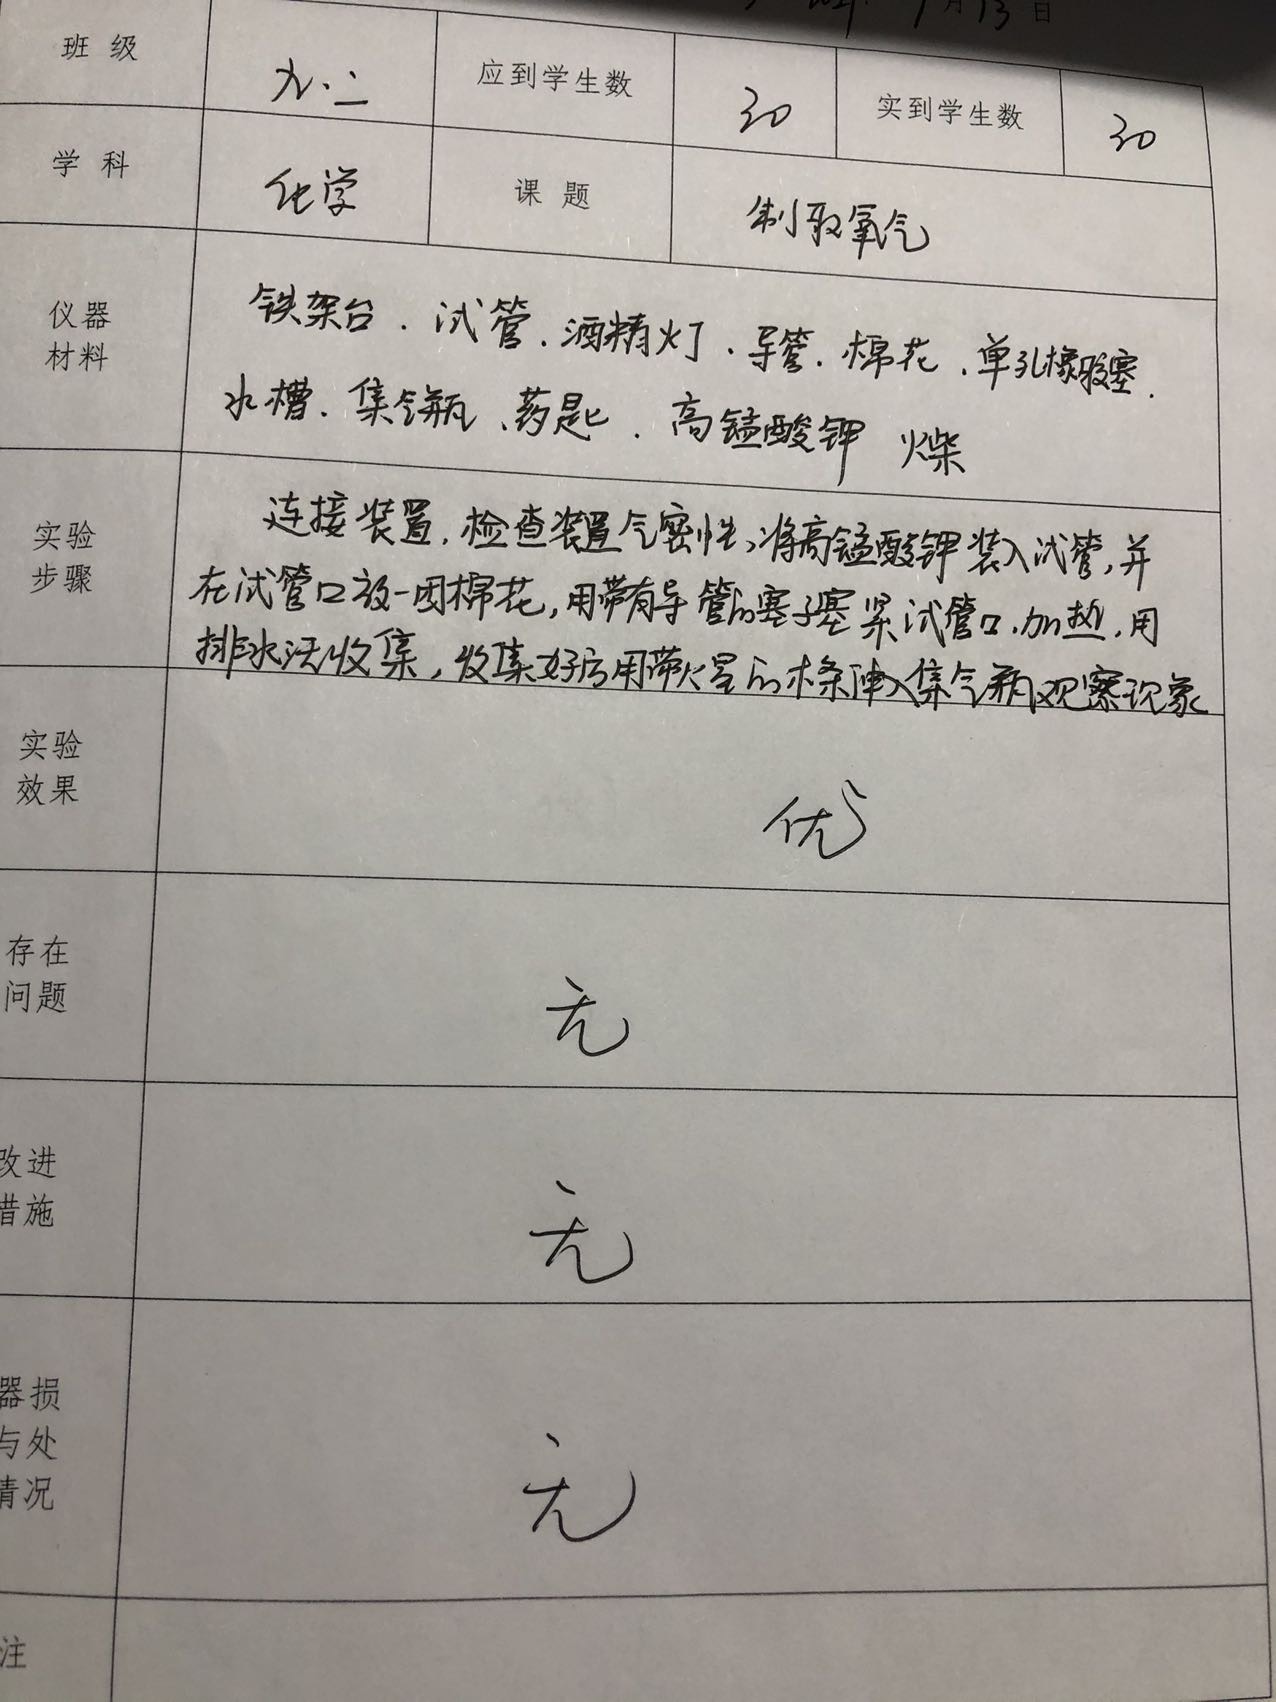 月13日
班级 九.二 应到学生数 30 实到学生数 30
学科 化学 课题 制取氧气
仪器
材料
铁架台.试管.酒精灯.导管.棉花.单孔橡胶塞.
水槽.集气瓶.药匙.高锰酸钾 火柴
实验
步骤
连接装置,检查装置气密性,将高锰酸钾装入试管,并
在试管口放一团棉花,用带有导管的塞子塞紧试管口.加热.用
排水法收集,收集好后用带火星的木条伸入集气瓶观察现象
实验
效果
优
存在
问题
无
改进
措施
无
器损
与处
情况
无
注